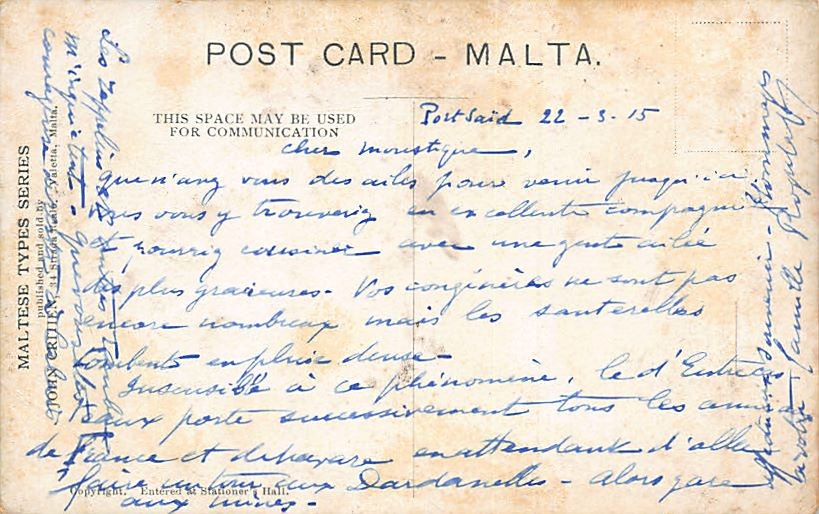 POST CARD - MALTA.
THIS SPACE MAY BE USED
FOR COMMUNICATION
Port Saïd 22 - 3 - 15
cher moustique,
Que n'avez vous des ailes pour venir jusqu'ici
vous vous y trouveriez en excellente compagnie
et pourriez cousiner avec une gente ailée
des plus gracieuses - Vos congénères ne sont pas
encore nombreux mais les sauterelles
tombent en pluie dense -
Insensible à ce phénomène, le d'Entrecas
teaux porte successivement tous les
de France et en attendant d'aller
faire un tour aux Dardanelles - Alors gare
aux mines -
Les Zeppelins et
m'inquiètent -
souvenir - Hommages
à votre famille
MALTESE TYPES SERIES
published and sold by
JOHN CRITIEN, 34 Strada Reale, Valetta, Malta.
Copyright. Entered at Stationer's Hall.